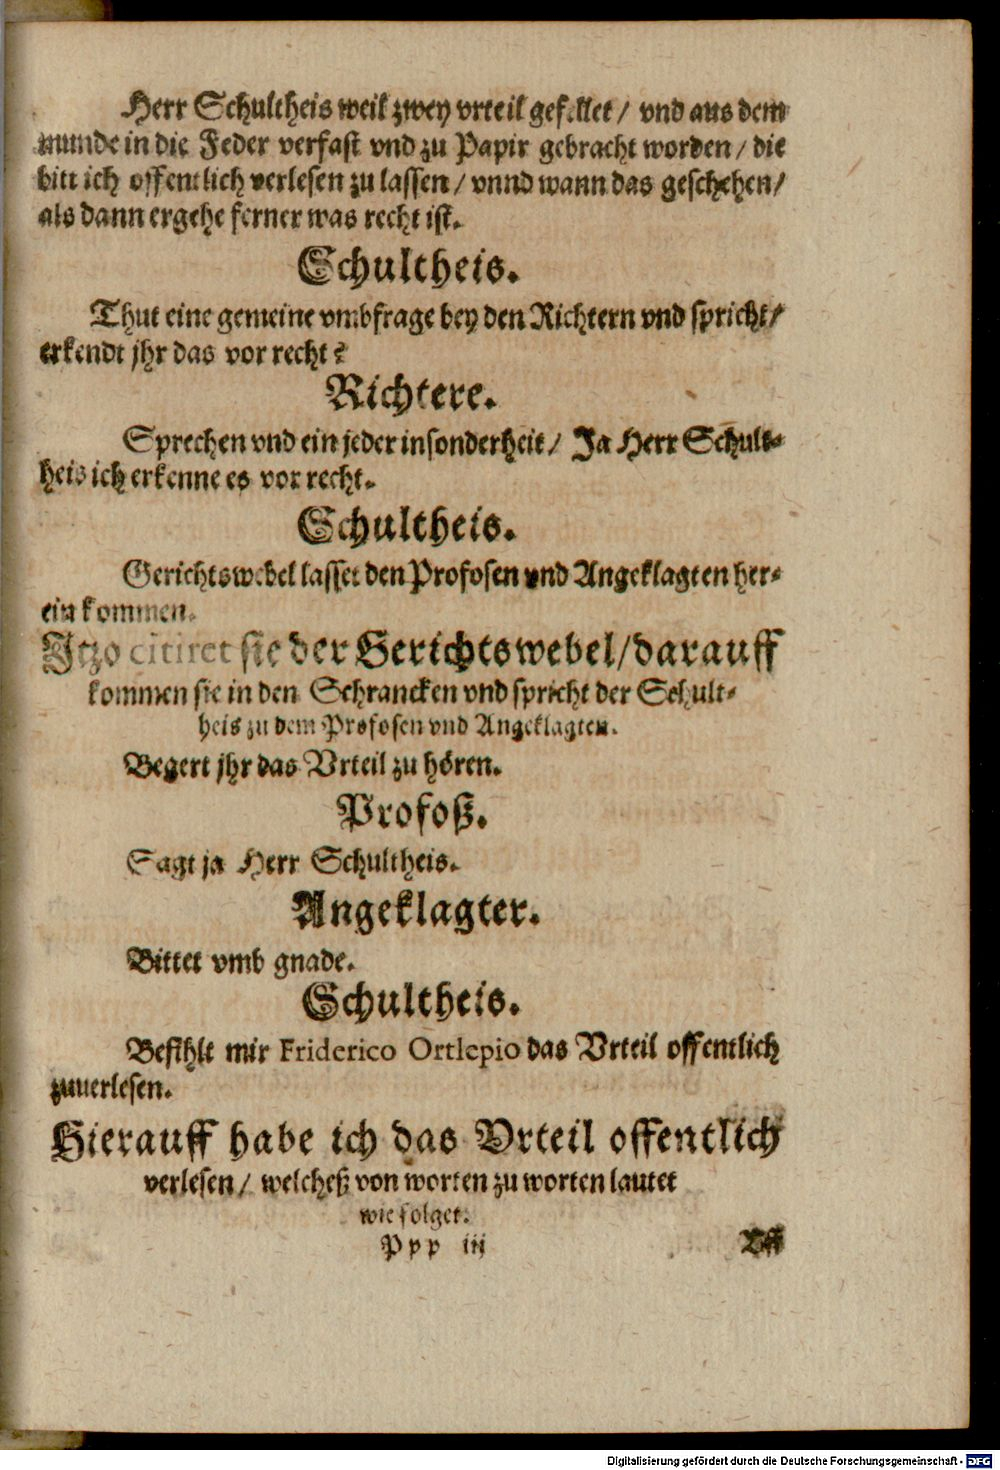 Herr Schultheis weil zwey vrteil gefellet / vnd aus dem
munde in die Feder verfast vnd zu Papir gebracht worden / die
bitt ich offentlich verlesen zu lassen / vnnd wann das geschehen /
als dann ergehe ferner was recht ist.
Schultheis.
Thut eine gemeine vmbfrage bey den Richtern vnd spricht /
erkendt jhr das vor recht?
Richtere.
Sprechen vnd ein jeder insonderheit / Ja Herr Schult-
heis ich erkenne es vor recht.
Schultheis.
Gerichtswebel lasset den Profosen vnd Angeklagten her-
ein kommen.
Jtzo citiret sie der Gerichtswebel / darauff
kommen sie in den Schrancken vnd spricht der Schult-
heis zu dem Profosen vnd Angeklagten.
Begert jhr das Vrteil zu hören.
Profoß.
Sagt ja Herr Schultheis.
Angeklagter.
Bittet vmb gnade.
Schultheis.
Befihlt mir Friderico Ortlepio das Vrteil offentlich
zuuerlesen.
Hierauff habe ich das Vrteil offentlich
verlesen / welcheß von worten zu worten lautet
wie folget.
Ppp iij
Vff
Digitalisierung gefördert durch die Deutsche Forschungsgemeinschaft - DFG